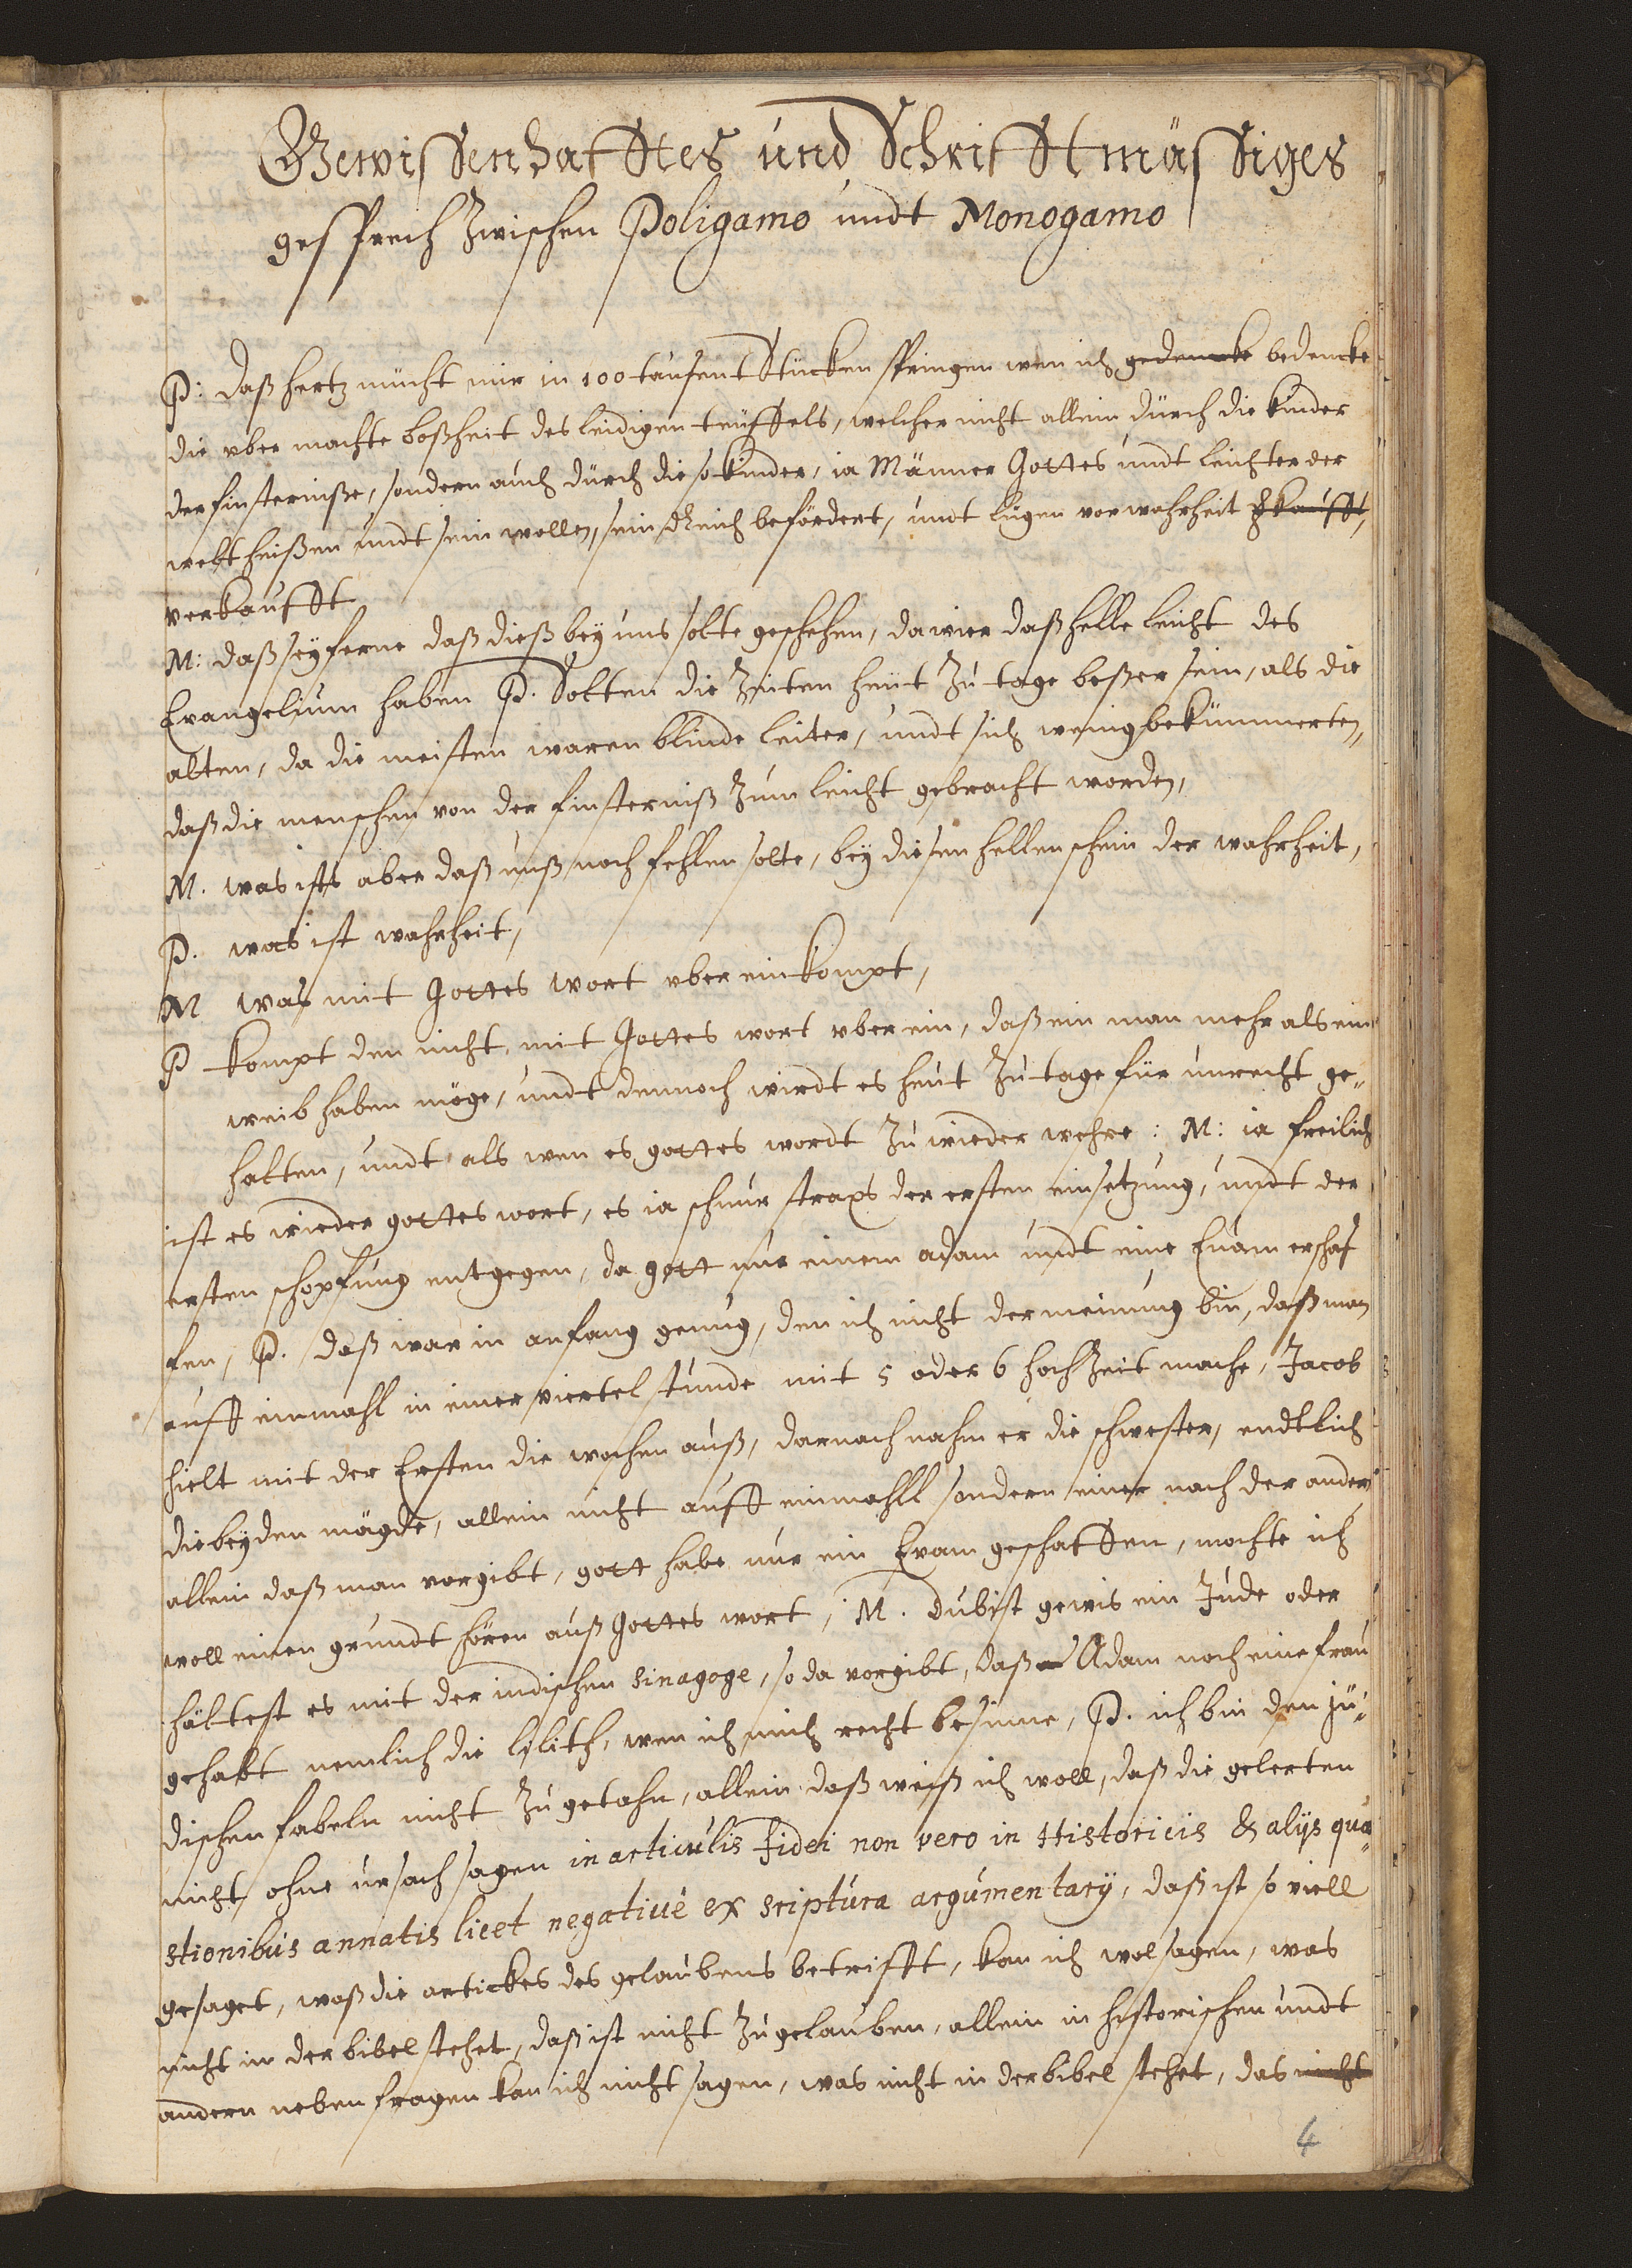 Gewissenhafftes und Schrifftmässiges
gesprech zwischen Poligamo undt Monogamo
P: daß hertz mücht mir in 100 tausent Stücken springen wen ich gedencke bedencke
die uber machte boßheit des leidigen teuffels, welcher nicht allein durch die kinder
der finsterniße, sondern auch durch die so kinder, ia Männer Gottes undt leichter der
welt heißen undt sein wollen, sein Reich befördert, undt lügen vor wahrheit
verkaufft
M: daß sey ferne daß dieß bey uns solte geschehen, da wier daß helle leicht des
Evangelium haben P. Solten die Zeiten heut zu tage beßer sein, als die
alten, da die meisten waren blinde leiter, undt sich wenig bekümmerten,
daß die menschen von der finsterniß zum leicht gebracht worden,
M. was ists aber daß unß noch fehlen solte, bey diesen hellen schein der wahrheit,
P. was ist wahrheit,
M was mit Gottes wort uber ein kompt,
P kompt den nicht mit Gottes wort uber ein, daß ein man mehr als ein
weib haben möge, undt dennoch wirdt es heut zu tage für unrecht ge-
halten, undt als wen es gottes wordt zu wieder wehre: M: ia freilich
ist es wieder gottes wort, es ia schnur straxs der ersten einsetzung, undt der
ersten schopfung entgegen, da gott nur einem adam undt eine Euam erschaf
fen, P. daß war in anfang genug, den ich nicht der meinung bin, daß man
auff einmahl in einer viertel stunde mit 5 oder 6 hochzeit mache, Jacob
hielt mit der Ersten die wochen auß, darnach nahm er die schwester, endtlich
die beyden mägde, allein nicht auff einmahll sondern einer nach der ander
allein daß man vorgibt, gott habe nur ein Evam geschaffen, mochte ich
woll einen grundt hören auß Gottes wort, M. du bist gewis ein Jude oder
hältest es mit der iudischen Sinagoge, so da vorgibt, daß Adam noch eine frau
gehabt nemlich die lilith, wen ich mich recht besinne, P. ich bin den jü-
dischen fabeln nicht zu getahn, allein daß weiß ich woll, daß die gelerten
nicht ohne ursach sagen in articulis fidei non vero in Historicis & alijs quæ
stionibus annatis licet negativè ex scriptura argumentarÿ, daß ist so viell
gesaget, waß die artickes des gelaubens betrifft, kan ich wol sagen, was
nicht in der bibel stehet, daß ist nicht zu gelauben, allein in historischen undt
andern neben fragen kan ich nicht sagen, was nicht in der bibel stehet, das nicht
4